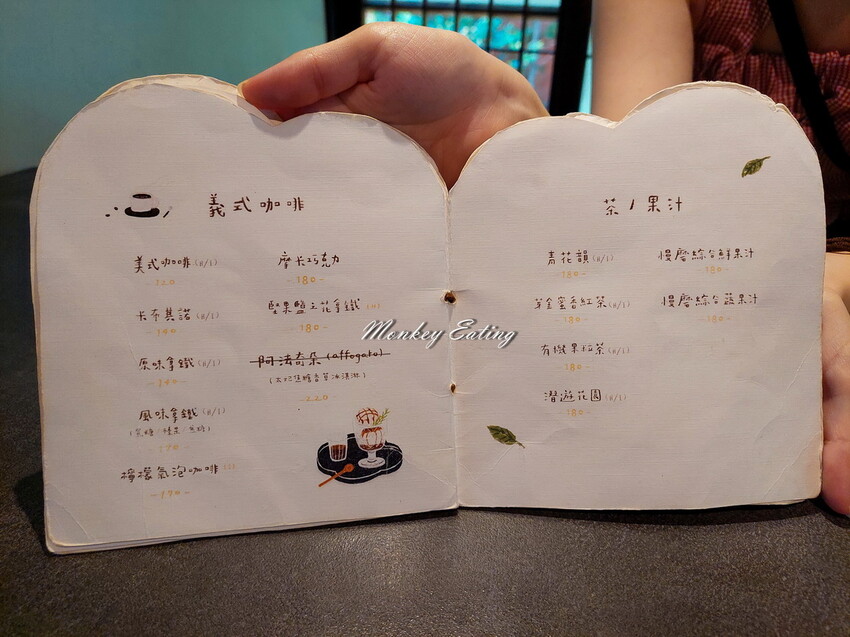 義式咖啡
美式咖啡 (H/I)
120
卡布其諾 (H/I)
-140-
原味拿鐵 (H/I)
-140-
風味拿鐵 (H/I)
-170-
檸檬氣泡咖啡 (I)
-170-
摩卡巧克力
-180-
堅果鹽之花拿鐵 (H)
-180-
阿法奇朵 (affogato)
-220-
茶/果汁
青花韻 (H/I)
-180-
蜜香紅茶 (H/I)
-180-
有機果粒茶 (H/I)
-180-
漫遊花園 (H/I)
180
慢磨綜合鮮果汁
-180-
慢磨綜合蔬果汁
-180-
Monkey Eating